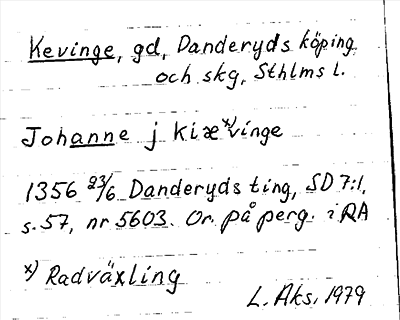 Kevinge, gd, Danderyds köping
och skg, Sthlms l.
Johanne j kiæˣ⁾vinge
1356 23/6 Danderyds ting, SD 7:1,
s. 57, nr 5603. Or. på perg. i RA
x) Radväxling
L. Aks. 1979